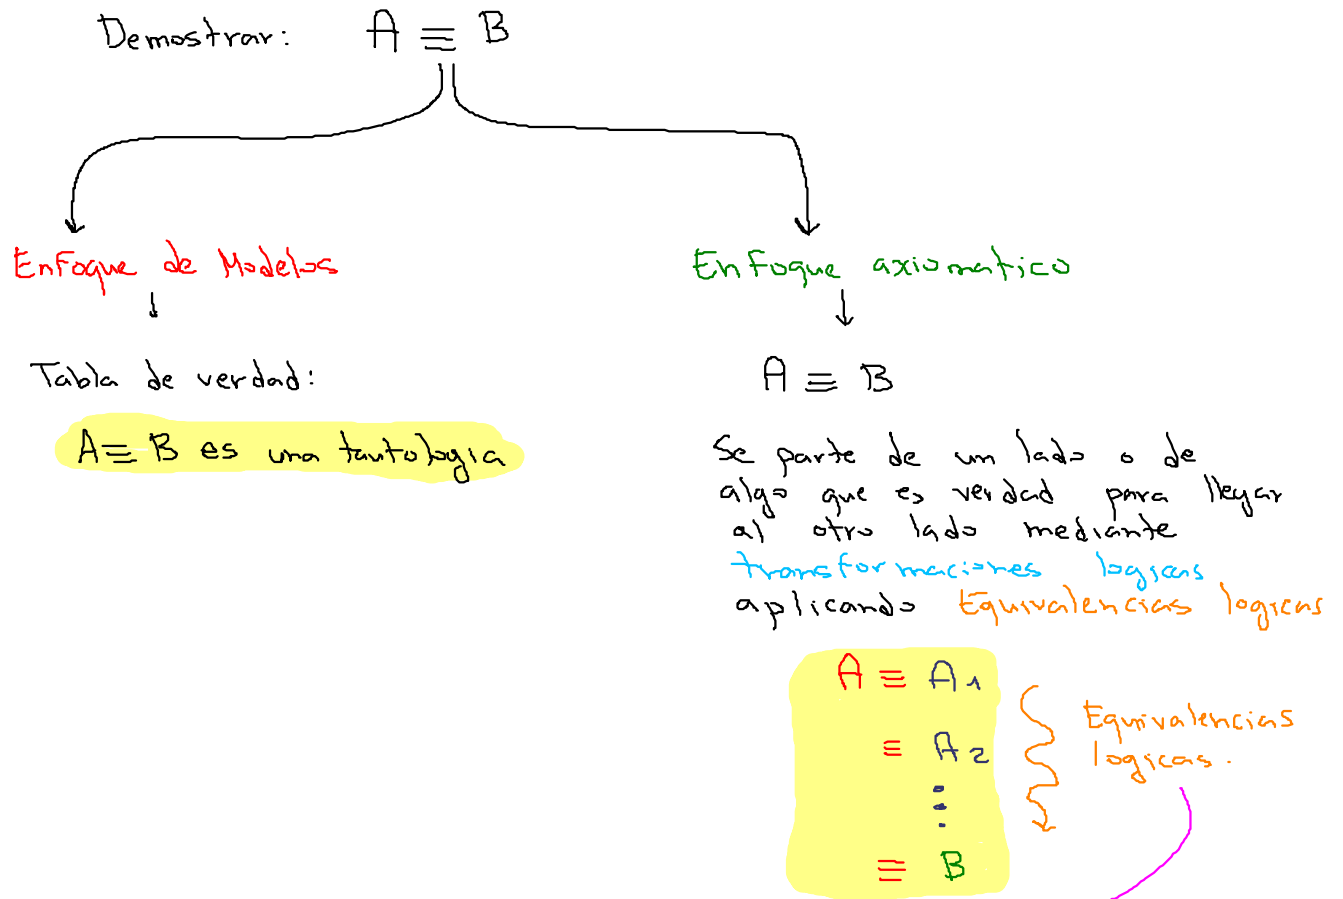 Demostrar: A ≡ B
Enfoque de Modelos
Tabla de verdad:
A ≡ B es una tautologia
Enfoque axiomatico
A ≡ B
Se parte de un lado o de
algo que es verdad para llegar
al otro lado mediante
transformaciones logicas
aplicando Equivalencias logicas
A ≡ A1
≡ A2
⋮
≡ B
Equivalencias
logicas.